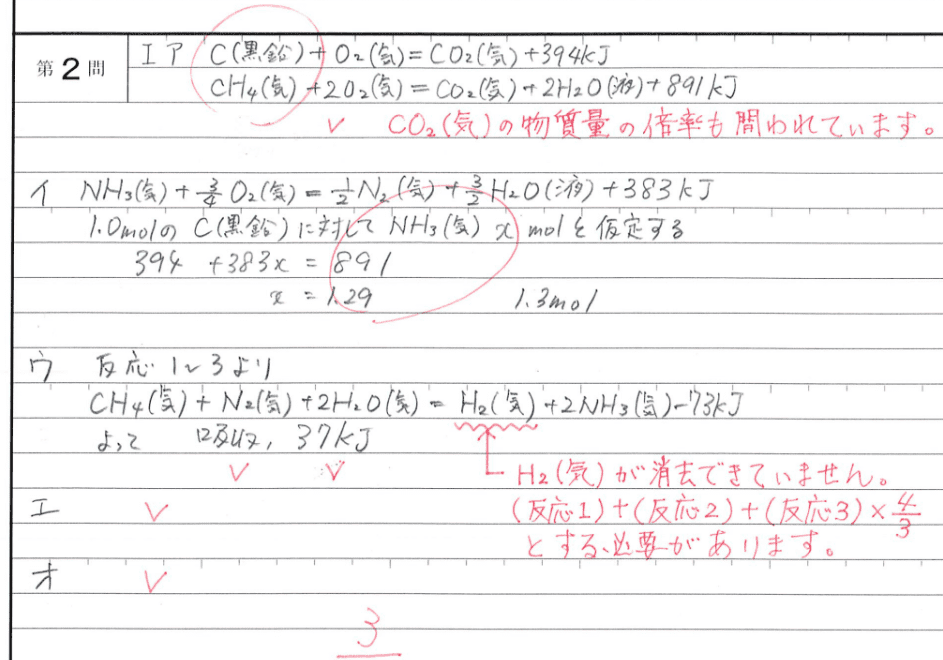 第2問
I ア C(黒鉛)+O₂(気)=CO₂(気)+394kJ
CH₄(気)+2O₂(気)=CO₂(気)+2H₂O(液)+891kJ
✓ CO₂(気)の物質量の倍率も問われています。
イ NH₃(気)+¾O₂(気)=½N₂(気)+3/2H₂O(液)+383kJ
1.0molのC(黒鉛)に対してNH₃(気)x molを仮定する
394+383x=891
x=1.29 1.3mol
ウ 反応1~3より
CH₄(気)+N₂(気)+2H₂O(気)=H₂(気)+2NH₃(気)-73kJ
よって 吸収, 37kJ
✓ ✓
H₂(気)が消去できていません。
エ ✓ (反応1)+(反応2)+(反応3)×4/3
とする必要があります。
オ ✓
3